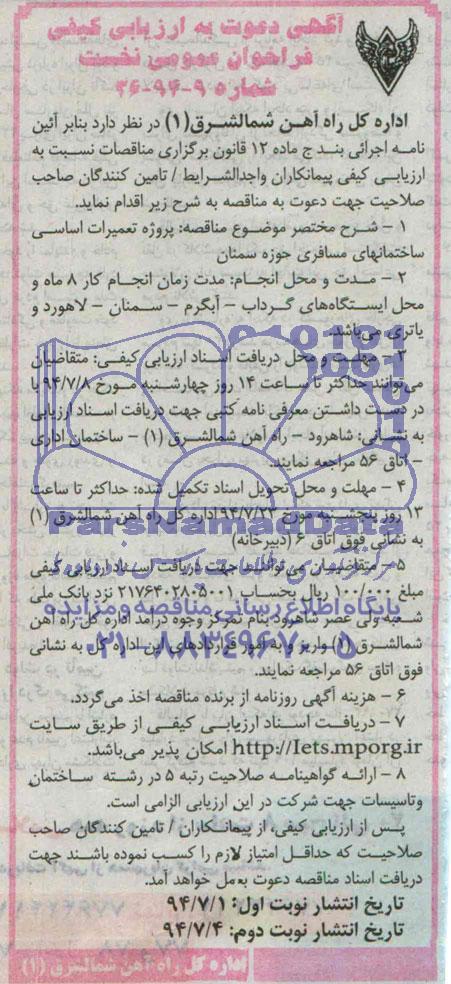 آگهی دعوت به ارزیابی کیفی
فراخوان عمومی نخست
شماره ۹-۹۴-۳۶
اداره کل راه آهن شمالشرق(۱) در نظر دارد بنابر آئین
نامه اجرائی بند ج ماده ۱۲ قانون برگزاری مناقصات نسبت به
ارزیابی کیفی پیمانکاران واجدالشرایط / تامین کنندگان صاحب
صلاحیت جهت دعوت به مناقصه به شرح زیر اقدام نماید.
۱ – شرح مختصر موضوع مناقصه: پروژه تعمیرات اساسی
ساختمانهای مسافری حوزه سمنان
۲ – مدت و محل انجام: مدت زمان انجام کار ۸ ماه و
محل ایستگاه‌های گرداب – آبگرم – سمنان – لاهورد و
یاتری می‌باشد.
۳ – مهلت و محل دریافت اسناد ارزیابی کیفی: متقاضیان
می‌توانند حداکثر تا ساعت ۱۴ روز چهارشنبه مورخ ۹۴/۷/۸ با
در دست داشتن معرفی نامه کتبی جهت دریافت اسناد ارزیابی
به نشانی: شاهرود – راه آهن شمالشرق (۱) – ساختمان اداری
– اتاق ۵۶ مراجعه نمایند.
۴ – مهلت و محل تحویل اسناد تکمیل شده: حداکثر تا ساعت
۱۳ روز پنجشنبه مورخ ۹۴/۷/۲۳ اداره کل راه آهن شمالشرق (۱)
به نشانی فوق اتاق ۶ (دبیرخانه)
۵ – متقاضیان می‌توانند جهت دریافت اسناد ارزیابی کیفی
مبلغ ۱۰۰/۰۰۰ ریال بحساب ۲۱۷۶۴۰۲۸۰۵۰۰۱ نزد بانک ملی
شعبه ولی عصر شاهرود بنام تمرکز وجوه درآمد اداره کل راه آهن
شمالشرق (۱) واریز و به امور قراردادهای این اداره کل به نشانی
فوق اتاق ۵۶ مراجعه نمایند.
۶ – هزینه آگهی روزنامه از برنده مناقصه اخذ می‌گردد.
۷ – دریافت اسناد ارزیابی کیفی از طریق سایت
http://Iets.mporg.ir امکان پذیر می‌باشد.
۸ – ارائه گواهینامه صلاحیت رتبه ۵ در رشته ساختمان
وتاسیسات جهت شرکت در این ارزیابی الزامی است.
پس از ارزیابی کیفی، از پیمانکاران / تامین کنندگان صاحب
صلاحیت که حداقل امتیاز لازم را کسب نموده باشند جهت
دریافت اسناد مناقصه دعوت به‌عمل خواهد آمد.
تاریخ انتشار نوبت اول: ۹۴/۷/۱
تاریخ انتشار نوبت دوم: ۹۴/۷/۴
اداره کل راه آهن شمالشرق (۱)
ParsNamadData
پایگاه اطلاع رسانی مناقصه و مزایده
۰۲۱-۸۸۳۴۹۶۷۰-۵